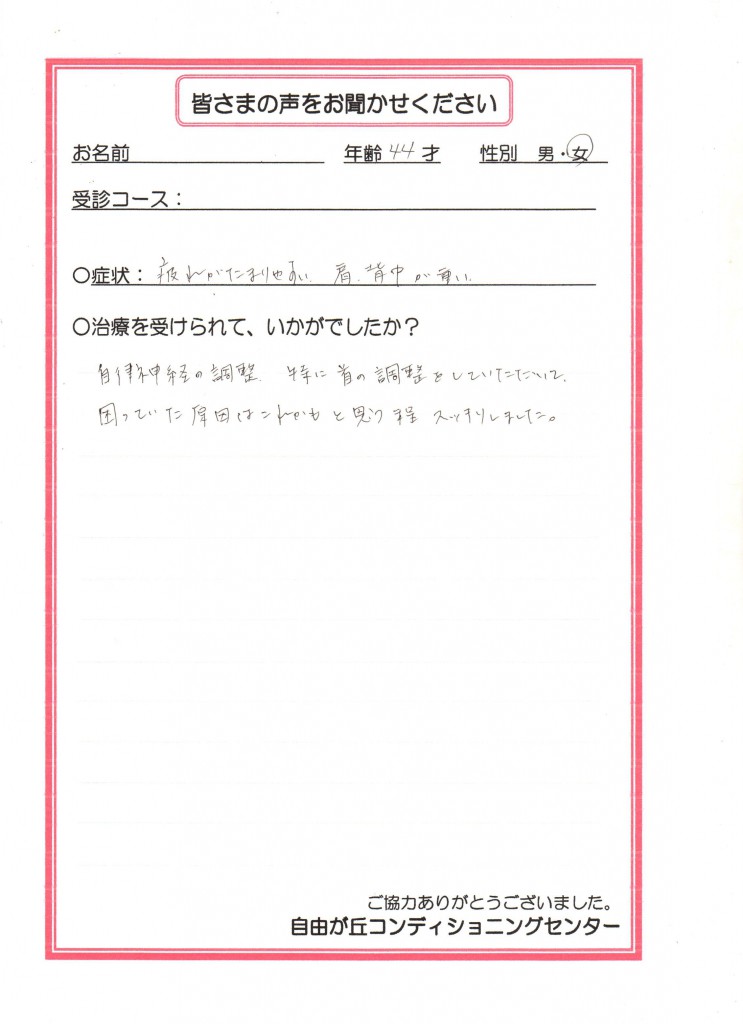 皆さまの声をお聞かせください
お名前 年齢 44 才 性別 男・女
受診コース：
○症状： 疲れがたまりやすい、肩、背中が重い、
○治療を受けられて、いかがでしたか？
自律神経の調整、特に首の調整をしていただいて、
困っていた原因はこれかもと思う程スッキリしました。
ご協力ありがとうございました。
自由が丘コンディショニングセンター